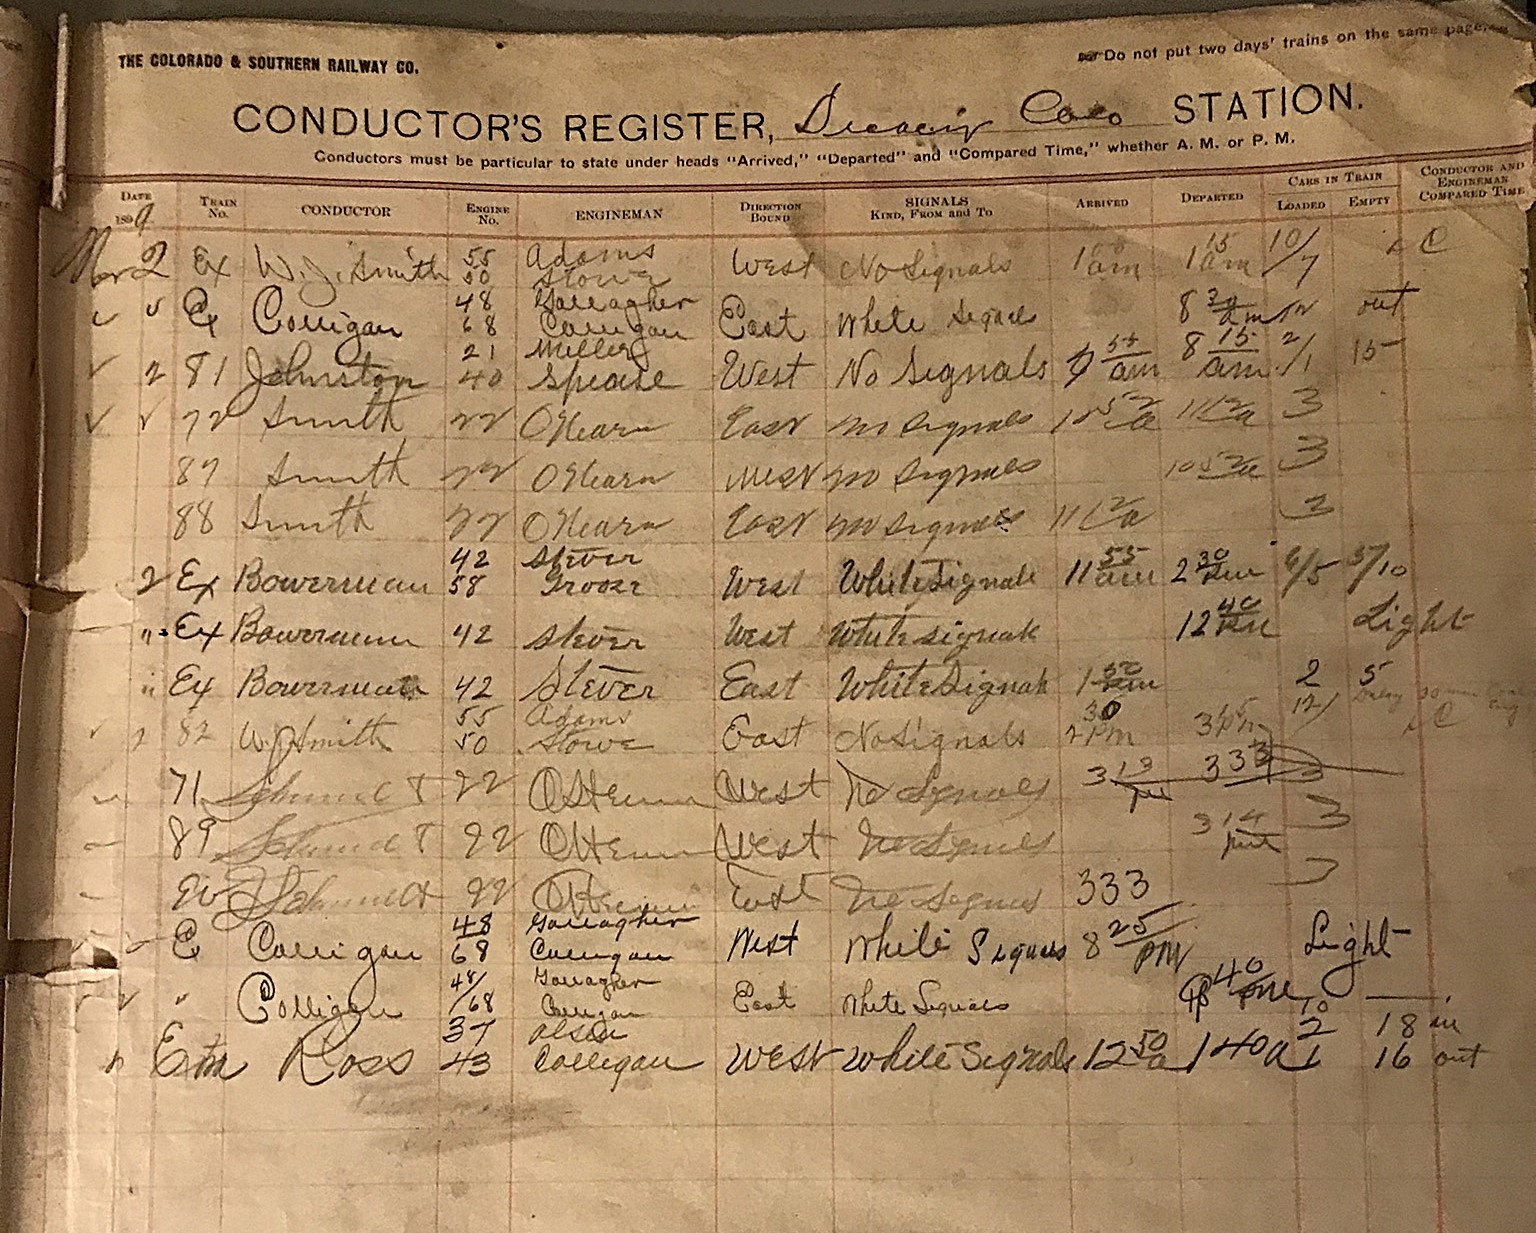 THE COLORADO & SOUTHERN RAILWAY CO.
Do not put two days' trains on the same page.
CONDUCTOR'S REGISTER, Colo STATION.
Conductors must be particular to state under heads "Arrived," "Departed" and "Compared Time," whether A. M. or P. M.
DATE 1899 TRAIN NO. CONDUCTOR ENGINE NO. ENGINEMAN DIRECTION BOUND SIGNALS KIND, FROM and TO ARRIVED DEPARTED CARS IN TRAIN LOADED EMPTY CONDUCTOR AND ENGINEMAN COMPARED TIME
2 Ex W. J. Smith 55 50 Adams Stowe West No Signals 1 am 1 15 am 10/7 C
Ex Colligan 48 68 Gallagher Colligan East White Signals 8 30 am out
2 81 Johnston 21 40 Miller Spease West No Signals 7 55 am 8 15 am 2/1 15
72 Smith 22 O'Hearn East no signals 10 52 a 11 12 a 3
87 Smith 22 O'Hearn West no signals 10 52 a 3
88 Smith 22 O'Hearn East no signals 11 12 a 3
2 Ex Bowerman 42 58 Stever West White Signals 11 55 am 2 30 pm 6/5 5/10
" Ex Bowerman 42 Stever West White signals 12 40 pm Light
" Ex Bowerman 42 Stever East White Signals 1 50 pm 2 5
2 82 W. J. Smith 55 50 Adams Stowe East No Signals 2 30 PM 3 15 pm 12/ C
71 Schmidt 22 O'Hearn West No Signals 3 13 pm 3 33 3
89 Schmidt 22 O'Hearn West No Signals 3 14 pm 3
Schmidt 22 O'Hearn East No Signals 333 3
E Colligan 48 68 Gallagher Colligan West White Signals 8 25 PM Light
" Colligan 48/68 Gallagher Colligan East White Signals 40 pm 10 —
Ross 37 43 Olson Colligan West White Signals 12 50 a 1 40 a 2 1 18 in 16 out